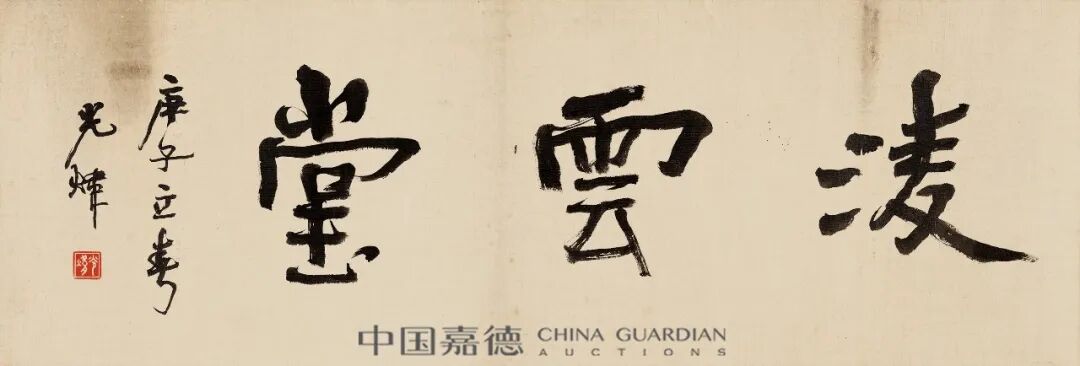 凌雲堂
庚子立春
光煒
中国嘉德 CHINA GUARDIAN
AUCTIONS